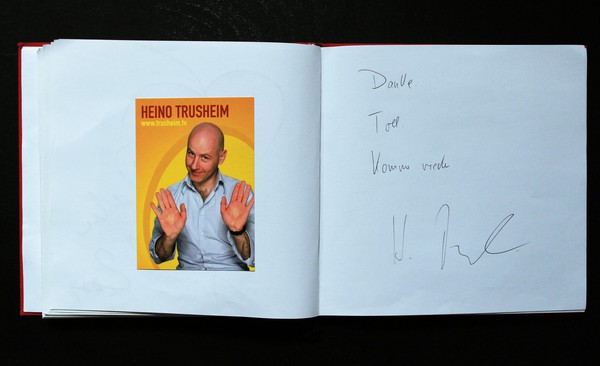 HEINO TRUSHEIM
www.trusheim.tv
Danke
Toll
Komme wieder